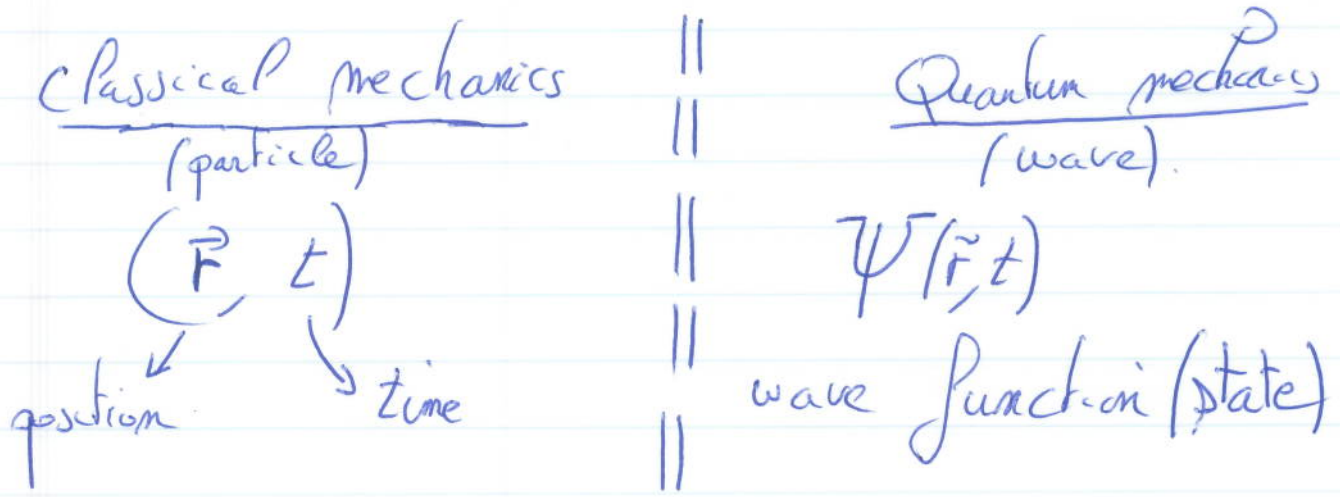 Classical mechanics
(particle)
(r⃗, t)
position
time
Quantum mechanics
(wave).
Ψ(r⃗, t)
wave function (state)